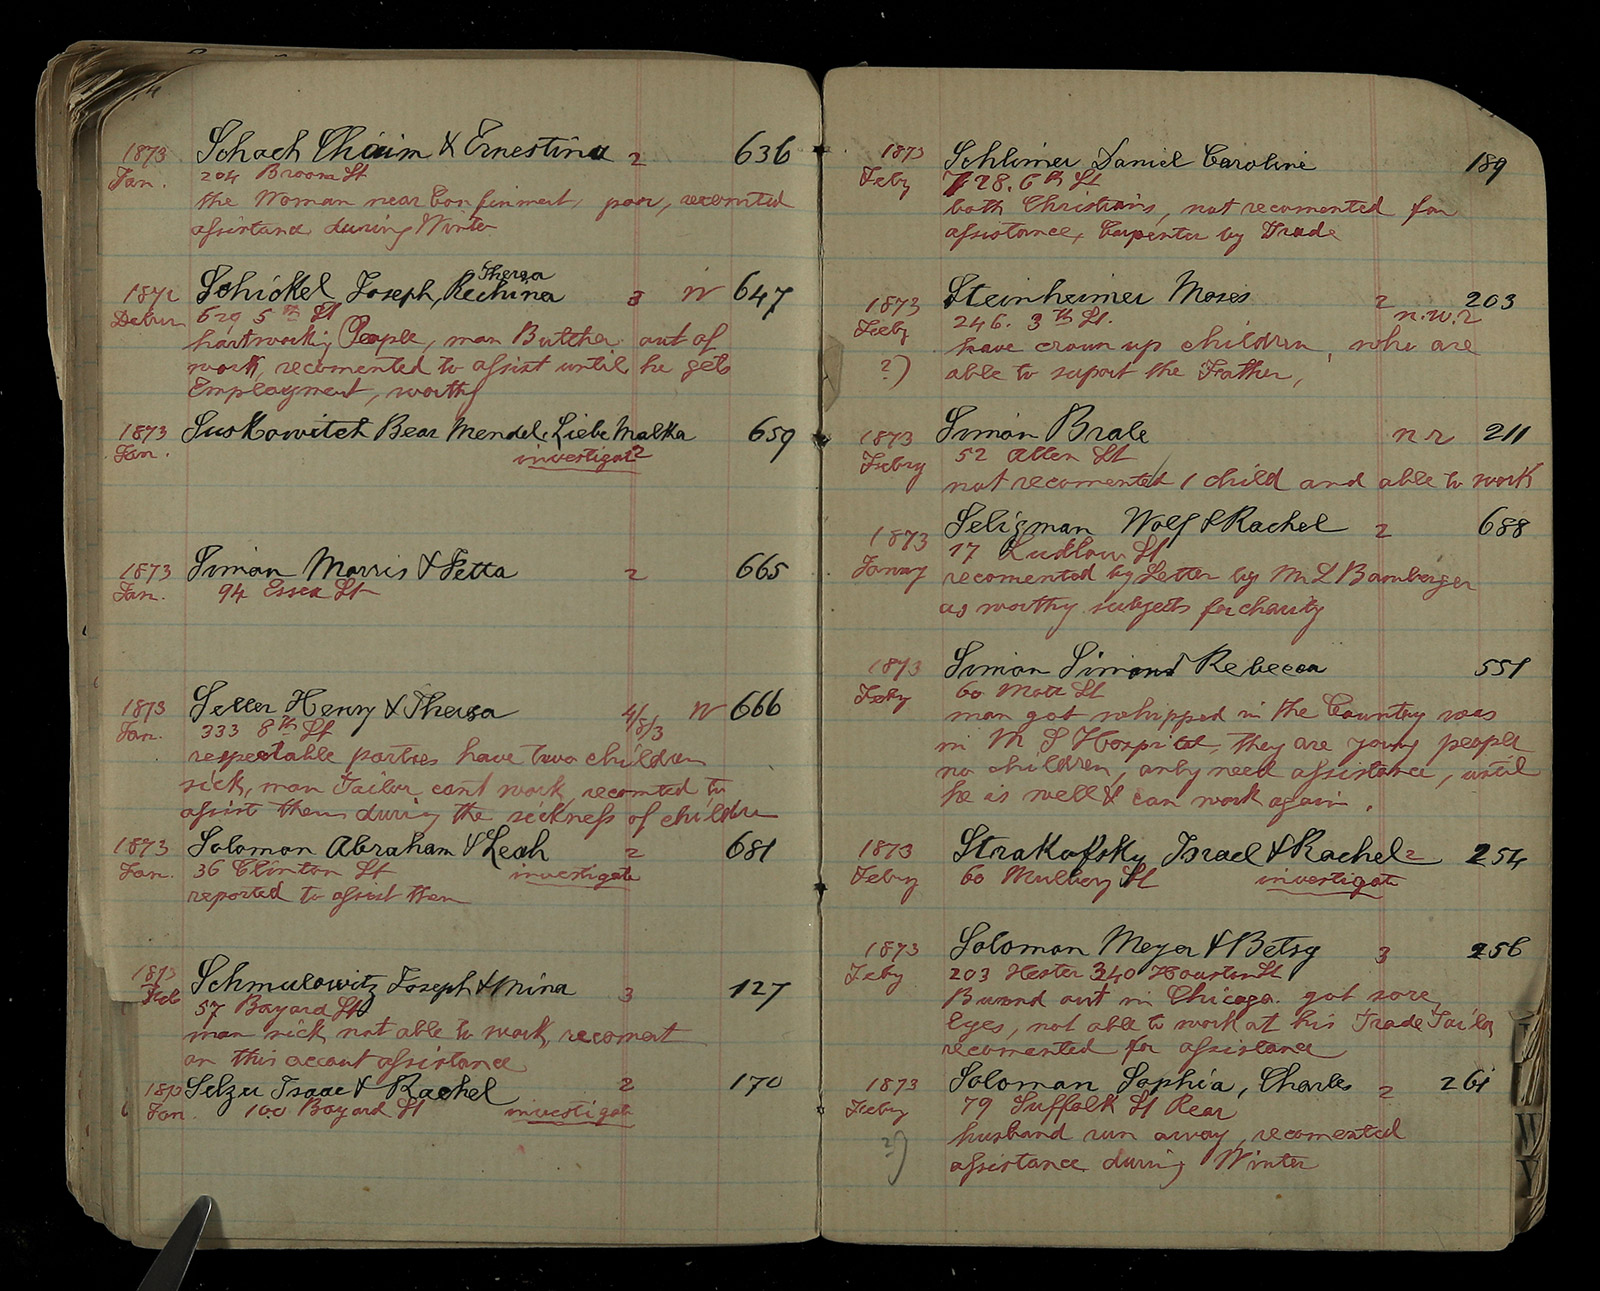 1873 Schach Chaim & Ernestina 2 636
Jan. 204 Broom St
the Woman near Confinment, poor, recomted
assistance during Winter
Theresa
1872 Schickel Joseph, Rechina 3 W 647
Decbr 629 5th St
hartworking People, man Butcher out of
work, recomented to assist until he gets
Employment, worthy
1873 Suskowitch Bear Mendel, Liebe Malka 659
Jan. investigate 2
1873 Simon Morris & Yetta 2 665
Jan. 94 Essex St
1873 Seller Henry & Theresa 4/5/3 W 666
Jan. 333 8th St
respectable parties have two children
sick, man Tailor cant work, recomted to
assist them during the sickness of children
1873 Solomon Abraham & Leah 2 681
Jan. 36 Clinton St investigate
reported to assist them
1873 Schmulowitz Joseph & Mina 3 127
Feb 57 Bayard St
man sick not able to work, recoment
on this accout assistance
1873 Selzer Isaac & Rachel 2 170
Jan. 100 Bayard St investigate
1873 Schlimer Daniel Caroline 189
Feby 728. 6th St
both Christians, not recomented for
assistance, Carpenter by Trade
1873 Steinheimer Moses 2 203
Feby 246. 3th St. n.w.r
have crown up children, who are
?) able to suport the Father,
1873 Simon Brale n r 211
Febry 52 Allen St
not recomented 1 child and able to work
Seligman Wolf & Rachel 2 688
1873 17 Ludlow St
Janury recomented by Letter by Mr L Bamberger
as worthy subjects for charity
1873 Simon Simond Rebecca 551
Feby 60 Mott St
man got whipped in the Country was
in M S Hospital, they are young people
no children, only need assistance, until
he is well & can work again.
1873 Strakofsky Israel & Rachel 2 254
Febry 60 Mulbery St investigate
1873 Solomon Meyer & Betsy 3 256
Feby 203 Hester 340 Houston St
Burnd out in Chicago. got sore
Eyes, not able to work at his Trade Tailor
recomented for assistance
1873 Soloman Sophia, Charles 2 261
Feby 79 Suffolk St Rear
?) husband run away, recomented
assistance during Winter
W
Y